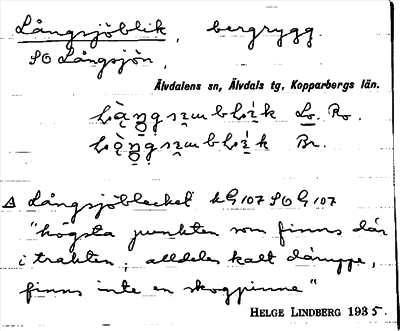 Långsjöblik, bergrygg.
SO Långsjön,
Älvdalens sn, Älvdals tg, Kopparbergs län.
Lo. Ro.
Br.
Δ Långsjöblecket kG107 SO G107
"högsta punkten som finns där
i trakten; alldeles kalt däruppe,
finns inte en skogpinne"
HELGE LINDBERG 1935.